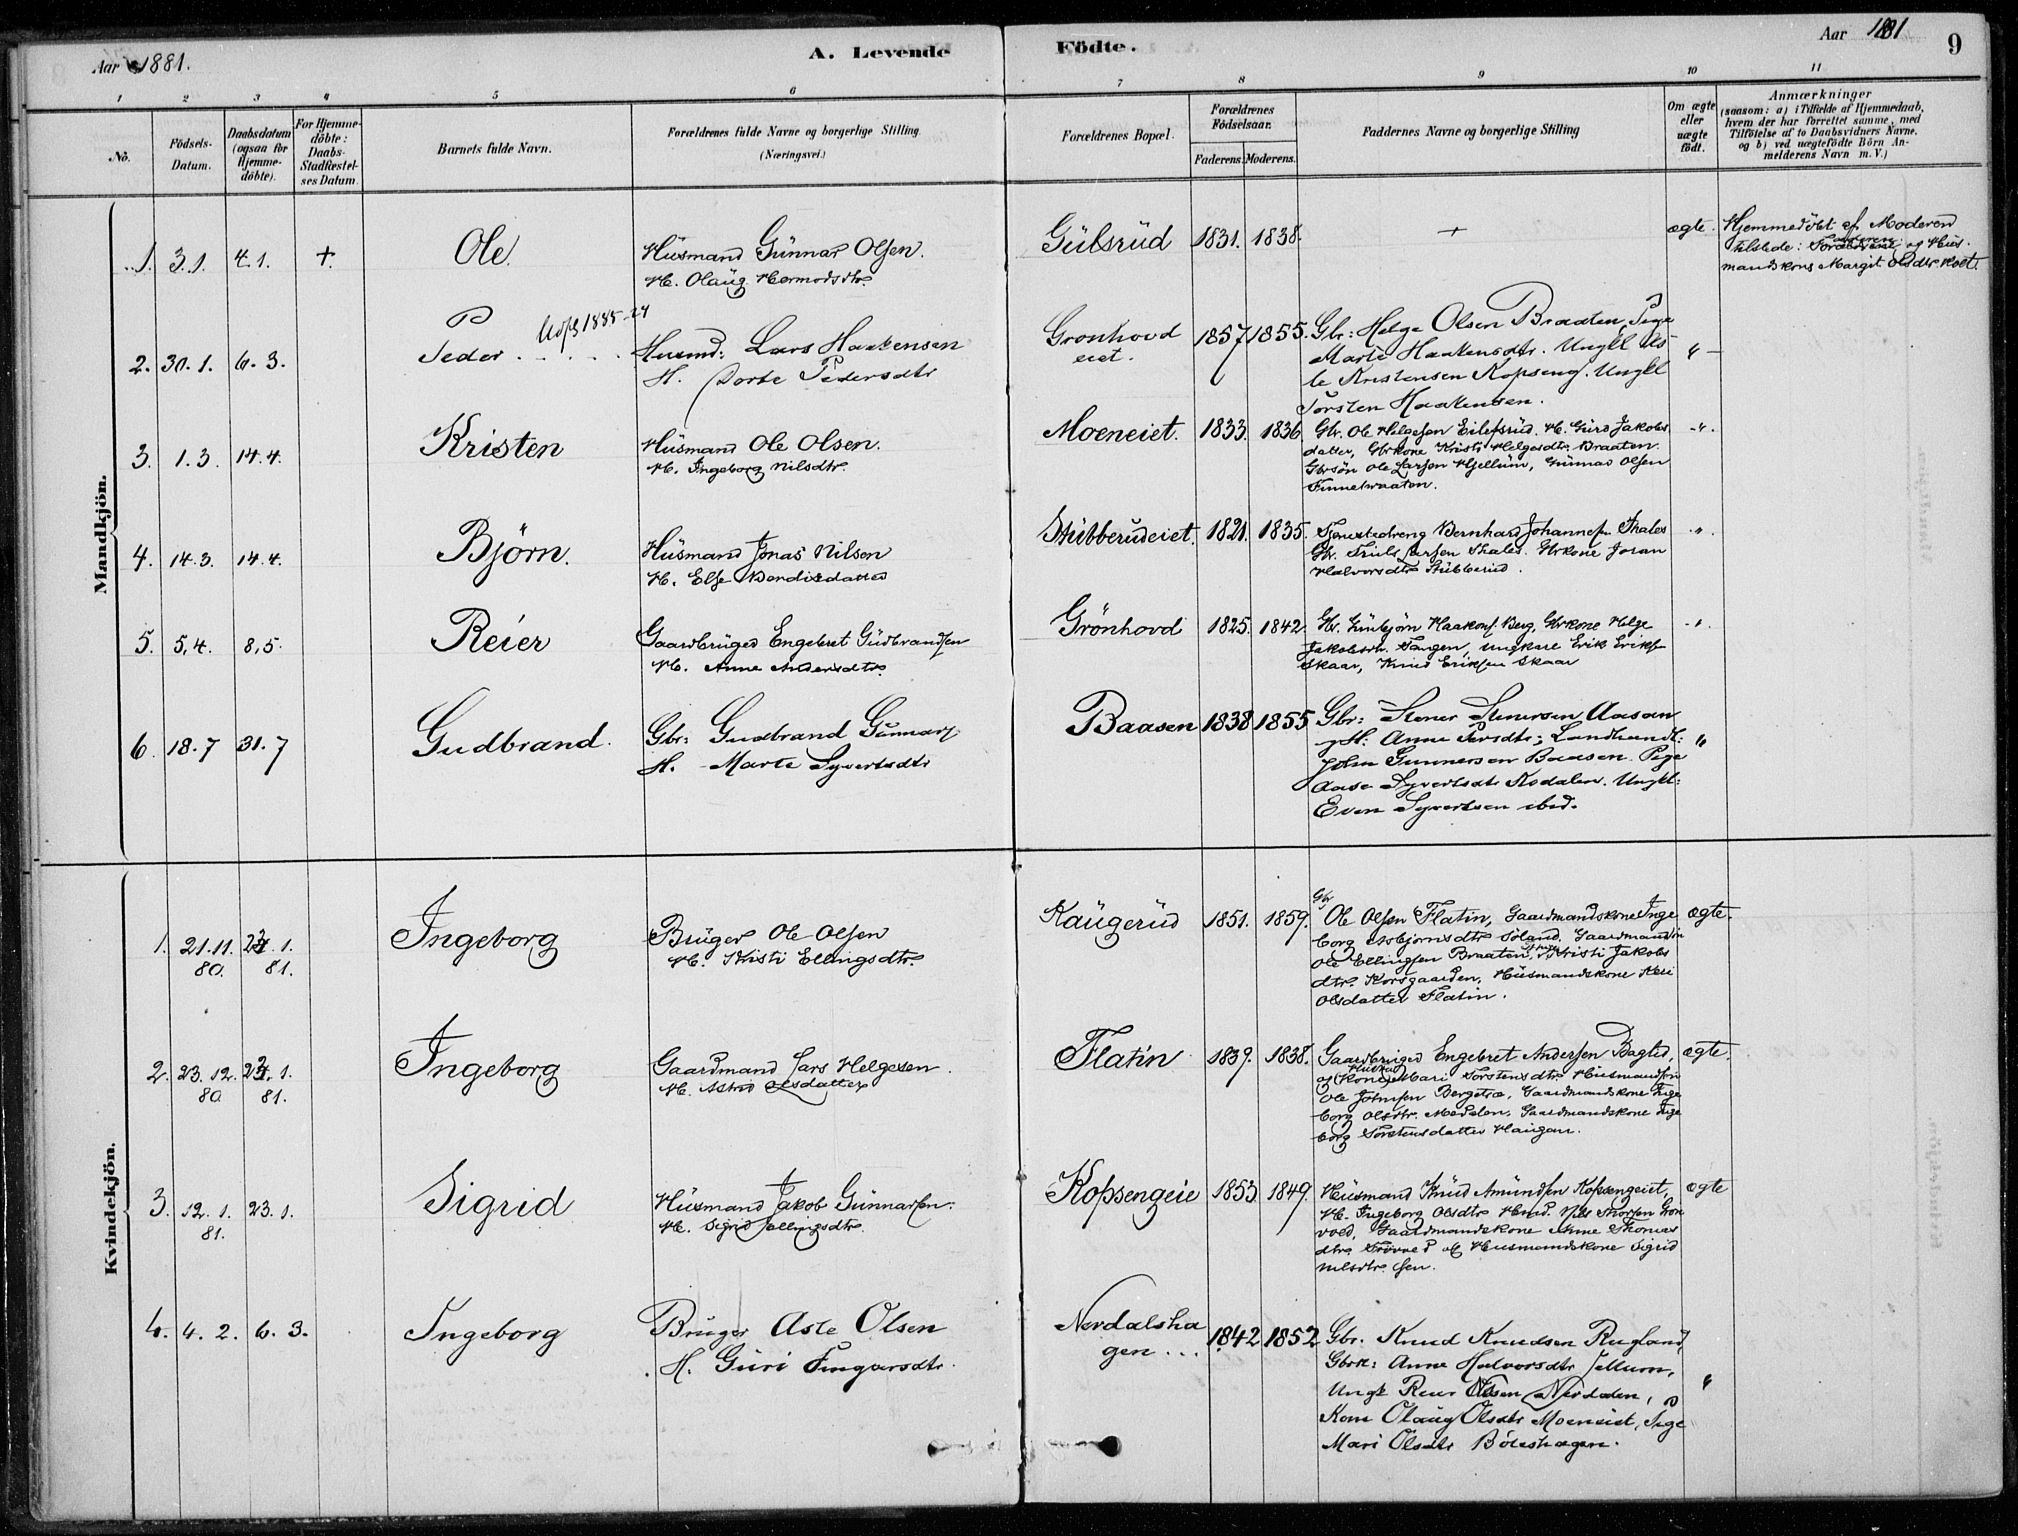 Aar 1881.
A. Levende
Födte.
Aar 1881
9
1 2 3 4 5 6 7 8 9 10 11
No.
Födsels-Datum.
Daabsdatum (ogsaa for Hjemme-döbte).
For Hjemme-döbte: Daabs-Stadfæstel-ses Datum.
Barnets fulde Navn.
Forældrenes fulde Navne og borgerlige Stilling.
(Næringsvei.)
Forældrenes Bopæl.
Forældrenes Födselsaar.
Faderens. Moderens.
Faddernes Navne og borgerlige Stilling
Om ægte eller uægte født.
Anmærkninger
(saasom: a) i Tilfælde af Hjemmedaab,
hvem der har forrettet samme, med
Tilföielse af to Daabsvidners Navne.
og b) ved uægtefödte Börn An-
melderens Navn m.V.)
Mandkjön.
1. 3.1. 4.1. +. Ole. Husmand Gunnar Olsen. Gulsrud 1831. 1838. + ægte. Hjemmedöbt af Moderen
H. Olaug Hermodsdtr. tilstede: og Hus-
mandskone Margit Olsdtr.
2. 30.1. 6.3. Peder Husmd: Lars Haakensen Gronhovd 1857 1855. Gbr: Helge Olsen Braaten, Pige
H. Dorte Pedersdtr eiet. Marte Haakensdtr. Ungkl
Kristensen Kopseng. Ungkl
Torsten Haakensen.
3. 1.3. 14.4. Kristen Husmand Ole Olsen. Moeneiet. 1833. 1836. Gbr. Ole Helgesen Eilefsrud. H. Guro Jakobs
H. Ingeborg Nilsdtr. datter, Gbrkone Kristi Helgesdtr. Braaten.
Gbrsön Ole Larsen Hjellum, Gunnar Olsen
Finnebraaten.
4. 14.3. 14.4. Björn. Husmand Jonas Nilsen Stubberudeiet. 1821. 1835. Tjenestedreng Bernhard Johannesen Thales
H. Else Bendixdatter Gbr. Truls Larsen Thales. Gbrkone Joran
Halvorsdtr Stubberud.
5. 5.4. 8.5. Reier Gaardbruger Engebret Gudbrandsen Grönhovd 1825. 1842. Gbr. Gunbjörn Haakons. Berg, Gbrkone Helge
H. Anne Andersdtr. Jakobsdr. Tangen, Ungkarl Erik Eriks.
Skaar, Knud Eriksen Skaar
6. 18.7 31.7 Gudbrand. Gbr: Gudbrand Gunnars Baasen 1838 1855 Gbr: Stener Stenersen Aasan
H. Marte Syvertsdtr H: Anne ; Landhandl:
John Gunnersen Baasen. Pige
Aase Syvertsdtr Kodalen. Ungkl:
Even Syvertsen ibid.
Kvindekjön.
1. 21.11. 80. 23.1. 81. Ingeborg Bruger Ole Olsen Kaugerud 1851. 1859. Gbr Ole Olsen Flatin, Gaardmandskone Inge ægte.
H. Kristi Ellingsdtr. borg Asbjörnsdtr Söland. Gaardmand
Ole Ellingsen Braaten, Kristi Jakobs
dtr. Korsgaarden. Husmandskone
Olsdatter Flatin.
2. 23.12. 80 23.1. 81. Ingeborg Gaardmand Lars Helgesen. Flatin 1839. 1838. Gaardbruger Engebret Andersen Baglid, ægte.
H. Astrid Olsdatter Kone Mari Torstensdtr. Husmand
Ole Johnsen Bergetræ, Gaardmandskone Inge
borg Olsdtr. Medalen, Gaardmandskone Inge
borg Torstensdatter Haugan.
3. 12.1. 81. 23.1. Sigrid Husmand Jakob Gunnarsen. Kopsengeie 1853. 1849. Husmand Knud Amundsen Kopsengeiet, ægte
H. Sigrid Ellingsdtr. H. Ingeborg Olsdtr Nils Thorsen Gron
vold, Gaardmandskone Anne Thomas
dtr. og Husmandskone Sigrid
Nilsdtr.
4. 4.2. 6.3. Ingeborg Bruger Asle Olsen Nerdalsha 1842 1852 Gbr. Knud Knudsen Rugland,
H. Guri Fingarsdtr. gen... Gbrk: Anne Halvorsdtr Jellum,
Ungk Reier Olsen Nerdalen,
Kone Olaug Olsdtr Moeneiet, Pige
Mari Olsdtr Böleshagen.